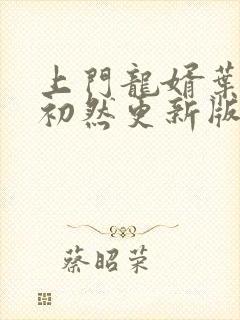 上門龍婿葉
初然更新版
蔡昭荣